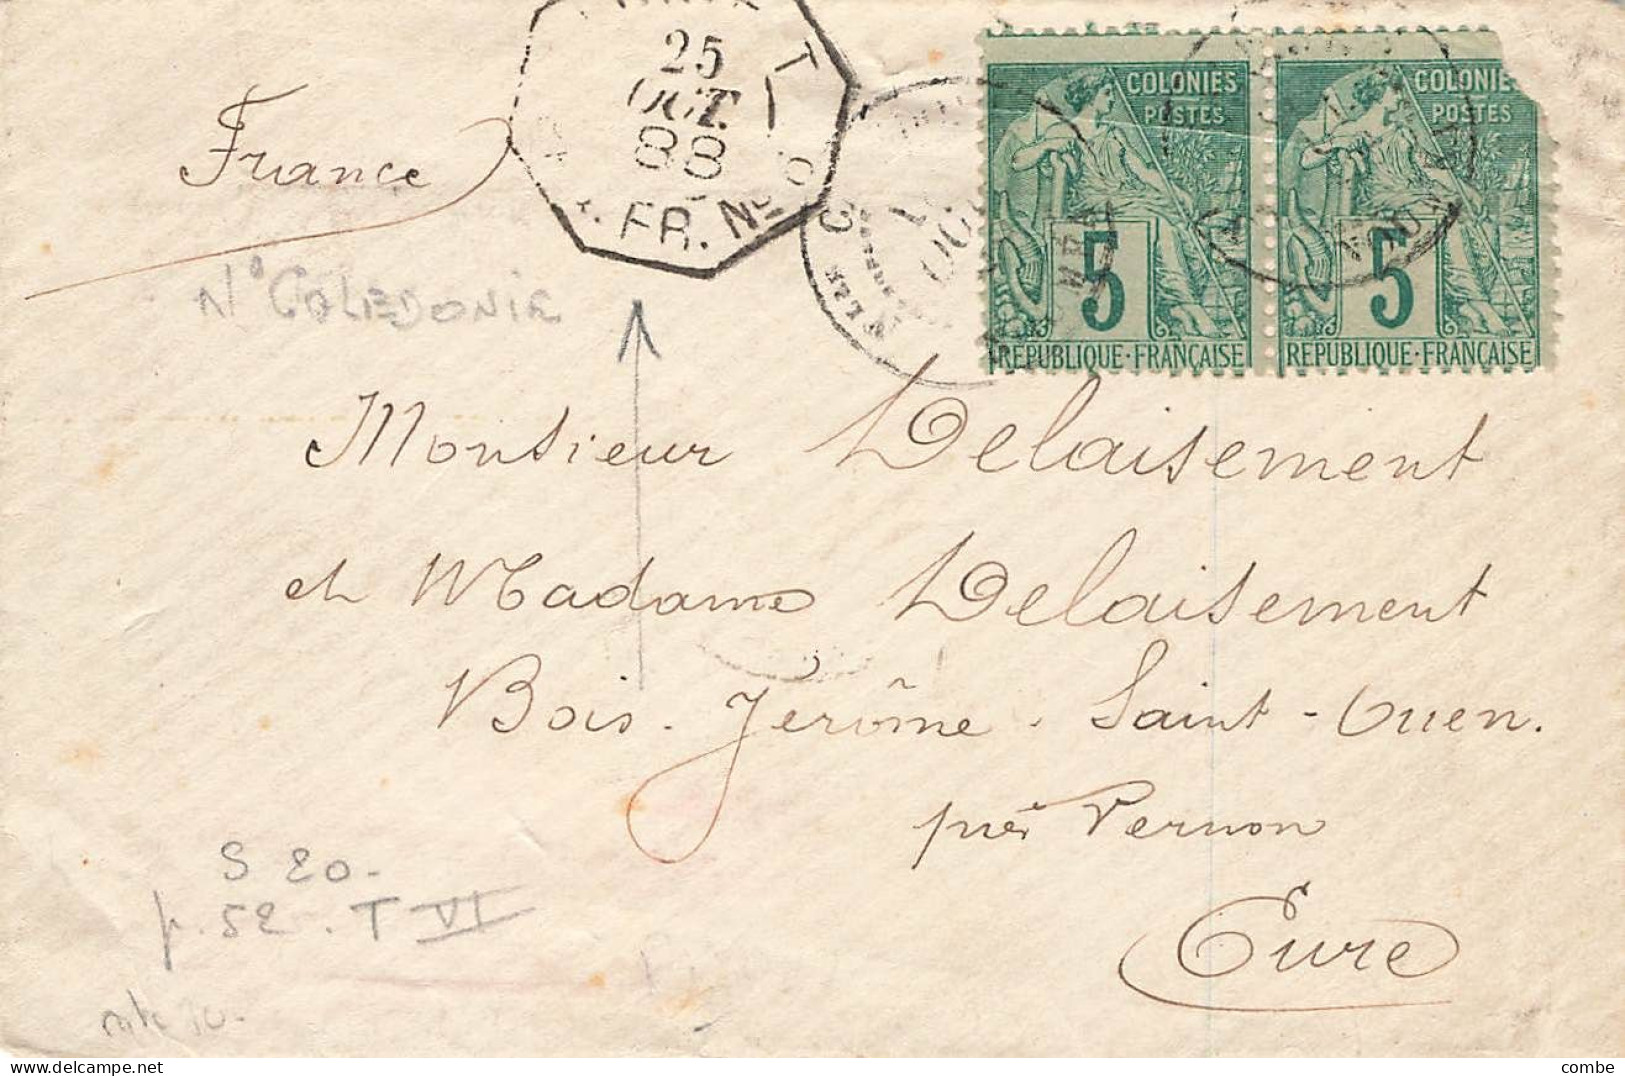 25
OCT.
88
T
FR. No
COLONIES
POSTES
5
REPUBLIQUE·FRANÇAISE
COLONIES
POSTES
5
REPUBLIQUE·FRANÇAISE
NOUMEA
France
Nº CALEDONIE
Monsieur Delaisement
et Madame Delaisement
Bois-Jérôme-Saint-Ouen.
près Vernon
Eure
S 20-
p.52-T VI
delcampe.net
combe